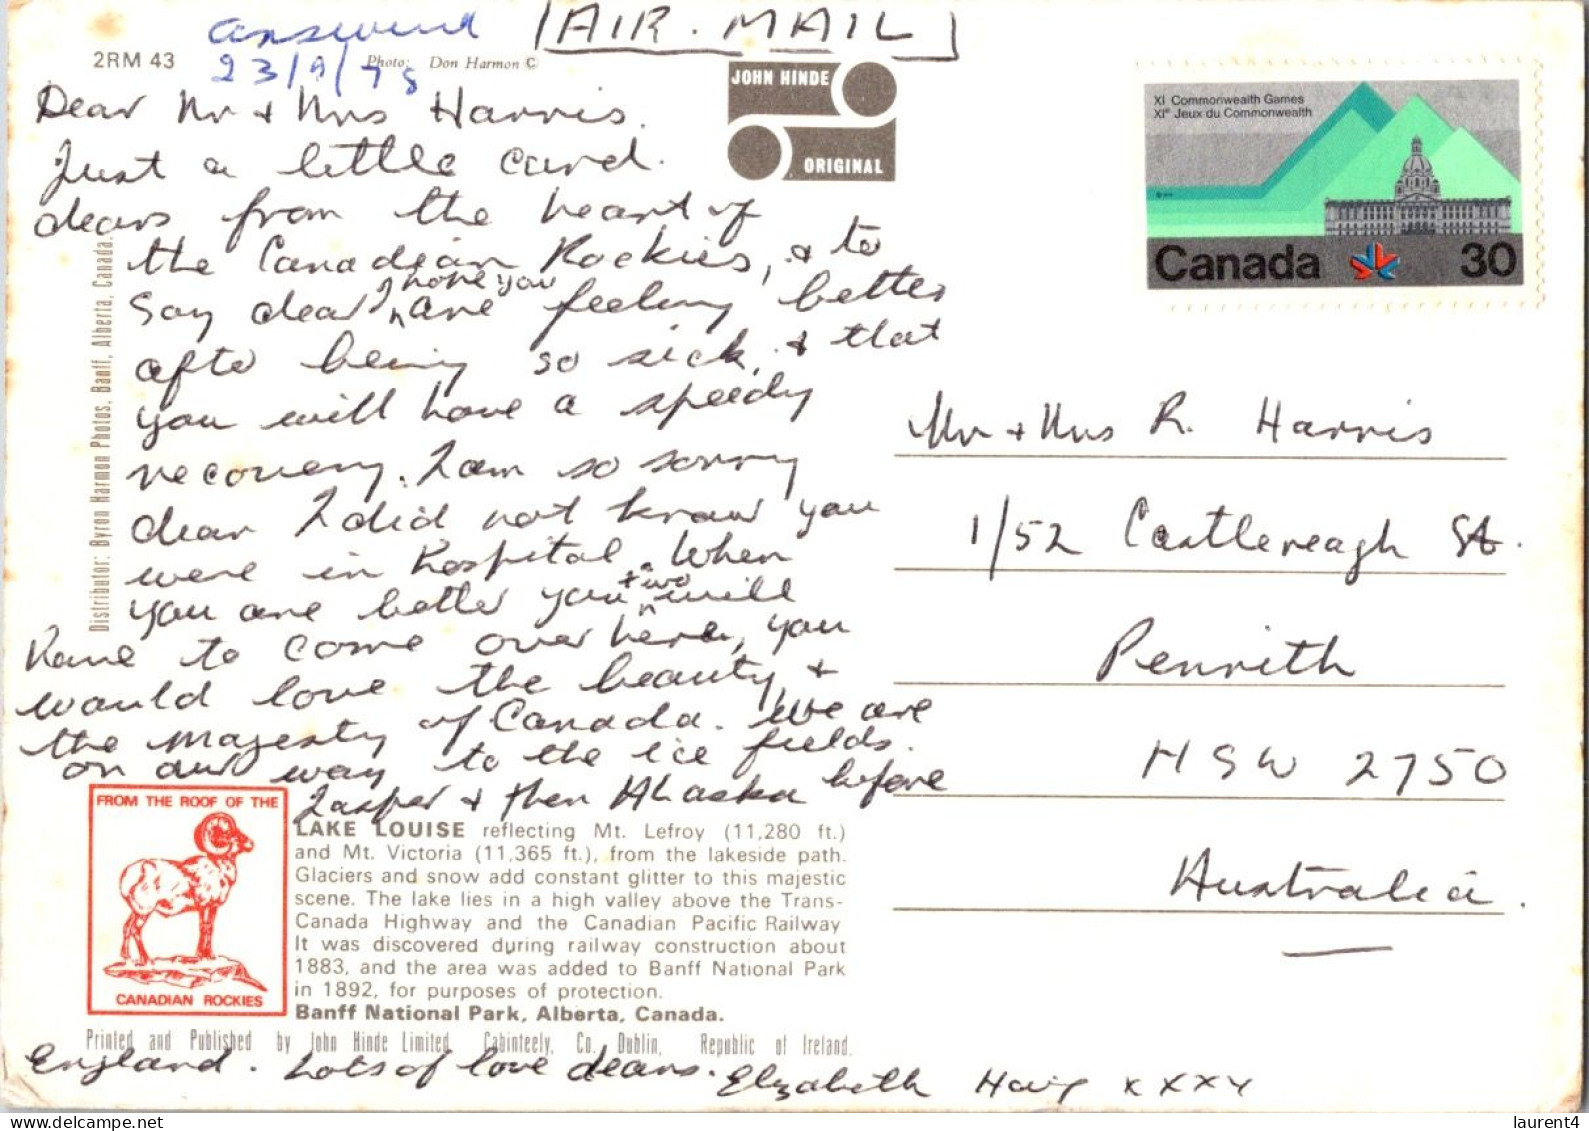 answered
23/9/78
AIR. MAIL
2RM 43
Photo: Don Harmon ©
JOHN HINDE
ORIGINAL
XI Commonwealth Games
XIe Jeux du Commonwealth
Canada 30
Dear Mr + Mrs Harris.
Just a little card.
dears from the heart of
the Canadian Rockies, + to
say dear I hope you are feeling better
after being so sick, + that
you will have a speedy
recovery. I am so sorry
dear I did not know you
were in Hospital. When
you are better you two will
have to come over here, you
would love the beauty +
the majesty of Canada. We are
on our way to the ice fields.
Jasper + then Alaska before
England. Lots of love dears. Elizabeth xxxx
Mr + Mrs R. Harris
1/52 Castlereagh St.
Penrith
NSW 2750
Australia.
Distributor: Byron Harmon Photos, Banff, Alberta, Canada.
FROM THE ROOF OF THE
CANADIAN ROCKIES
LAKE LOUISE reflecting Mt. Lefroy (11,280 ft.)
and Mt. Victoria (11,365 ft.), from the lakeside path.
Glaciers and snow add constant glitter to this majestic
scene. The lake lies in a high valley above the Trans-
Canada Highway and the Canadian Pacific Railway
It was discovered during railway construction about
1883, and the area was added to Banff National Park
in 1892, for purposes of protection.
Banff National Park, Alberta, Canada.
Printed and Published by John Hinde Limited, Cabinteely, Co. Dublin, Republic of Ireland.
laurent4